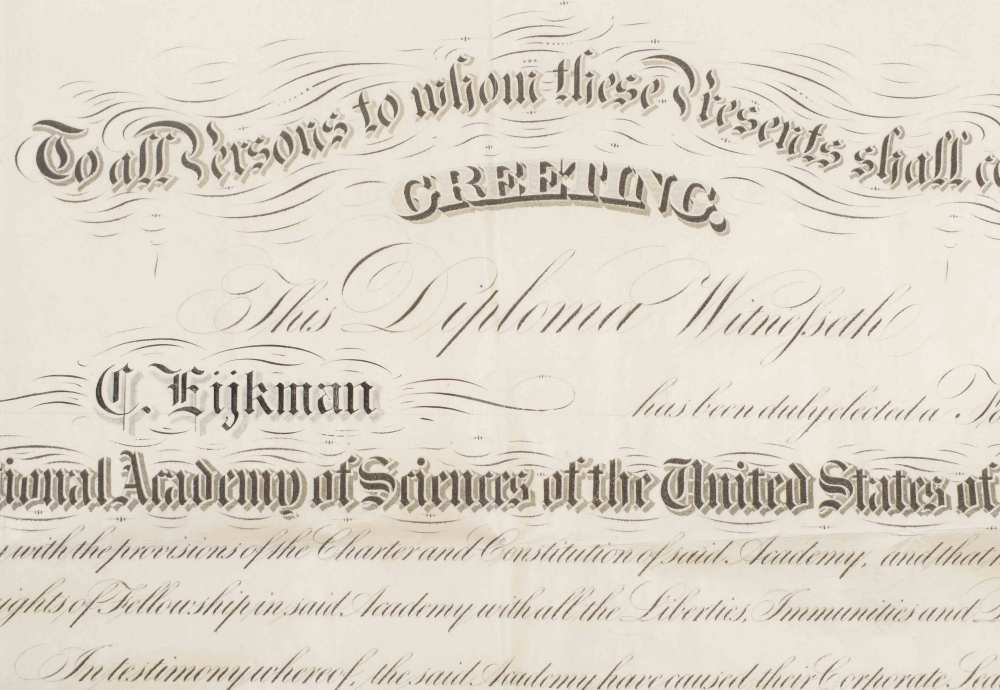 To all Persons to whom these Presents shall
GREETING.
This Diploma Witnesseth
C. Eijkman
has been duly elected a
tional Academy of Sciences of the United States of
with the provisions of the Charter and Constitution of said Academy, and that
ights of Fellowship in said Academy with all the Liberties, Immunities and
In testimony whereof, the said Academy have caused their Corporate Sea